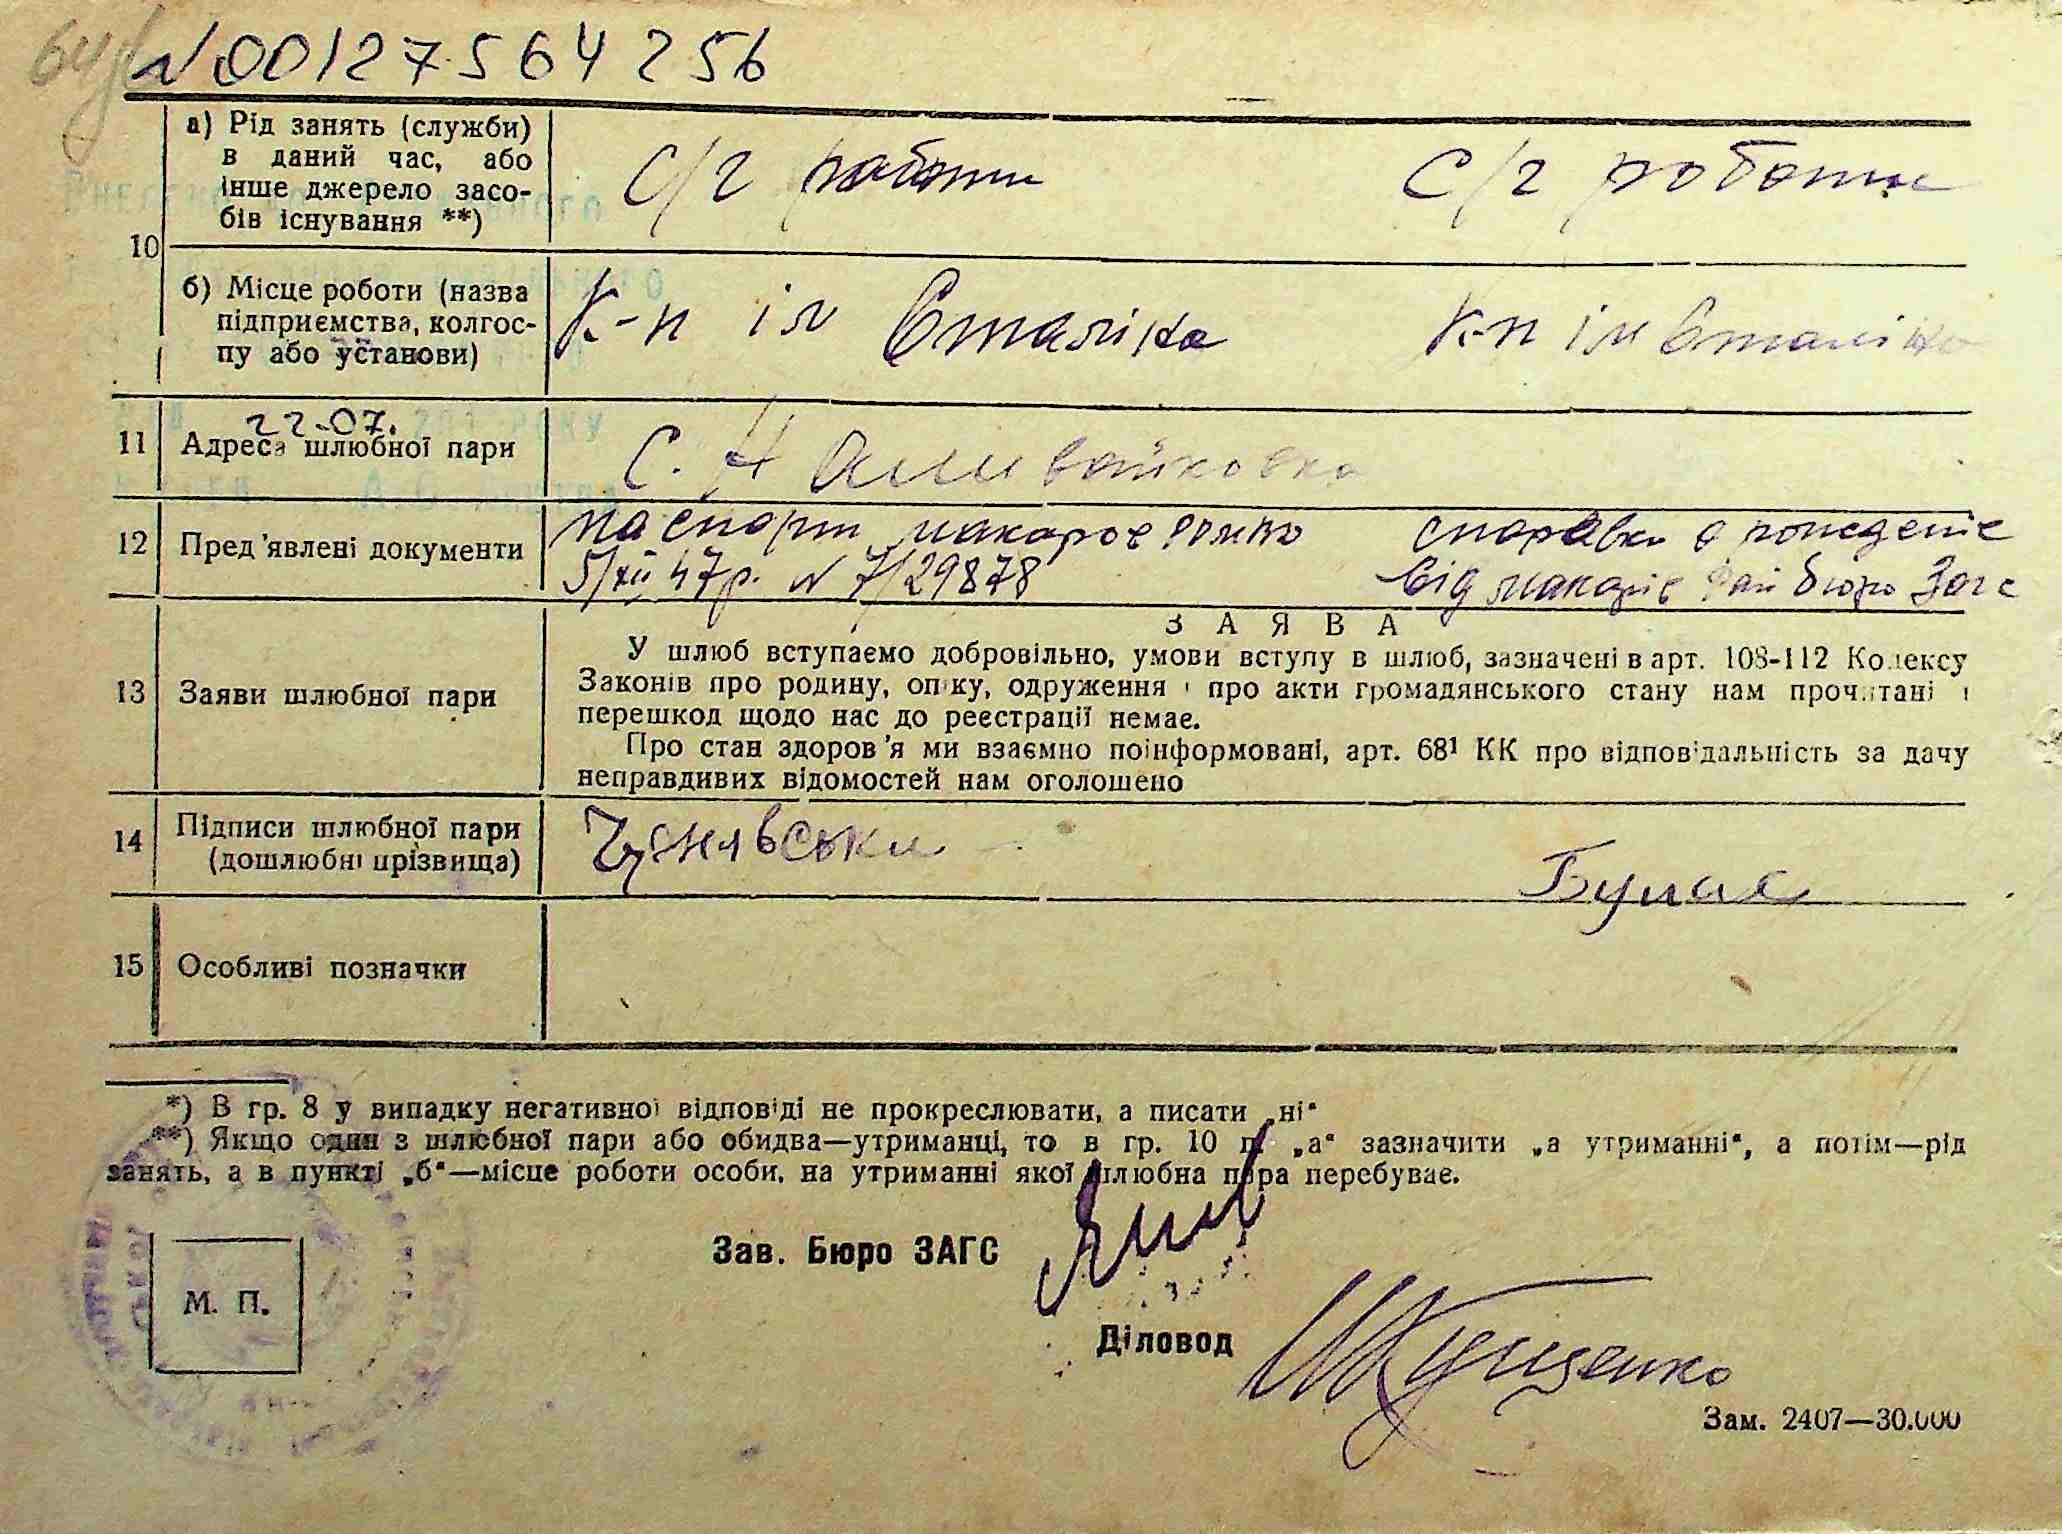 N00127564256
а) Рід занять (служби)
в даний час, або
інше джерело засо-
бів існування **)
с/г работи
с/г роботи
10
б) Місце роботи (назва
підприємства, колгос-
пу або установи)
К-п ім Сталіна
К-п ім Сталіна
22-07.
11 Адреса шлюбної пари
с. Наливайковка
12 Пред'явлені документи
паспорт
5/XII 47р. N 7/29878
справка о рождение
від макарів рай бюро Загс
ЗАЯВА
13 Заяви шлюбної пари
У шлюб вступаємо добровільно, умови вступу в шлюб, зазначені в арт. 108-112 Кодексу
Законів про родину, опіку, одруження і про акти громадянського стану нам прочитані і
перешкод щодо нас до реєстрації немає.
Про стан здоров'я ми взаємно поінформовані, арт. 68¹ КК про відповідальність за дачу
неправдивих відомостей нам оголошено
14 Підписи шлюбної пари
(дошлюбні прізвища)
Булах
15 Особливі позначки
*) В гр. 8 у випадку негативної відповіді не прокреслювати, а писати „ні"
**) Якщо один з шлюбної пари або обидва—утриманці, то в гр. 10 п. „а" зазначити „а утриманні", а потім—рід
занять, а в пункті „б"—місце роботи особи, на утриманні якої шлюбна пара перебуває.
Зав. Бюро ЗАГС
М. П.
Діловод
Кущенко
Зам. 2407—30.000